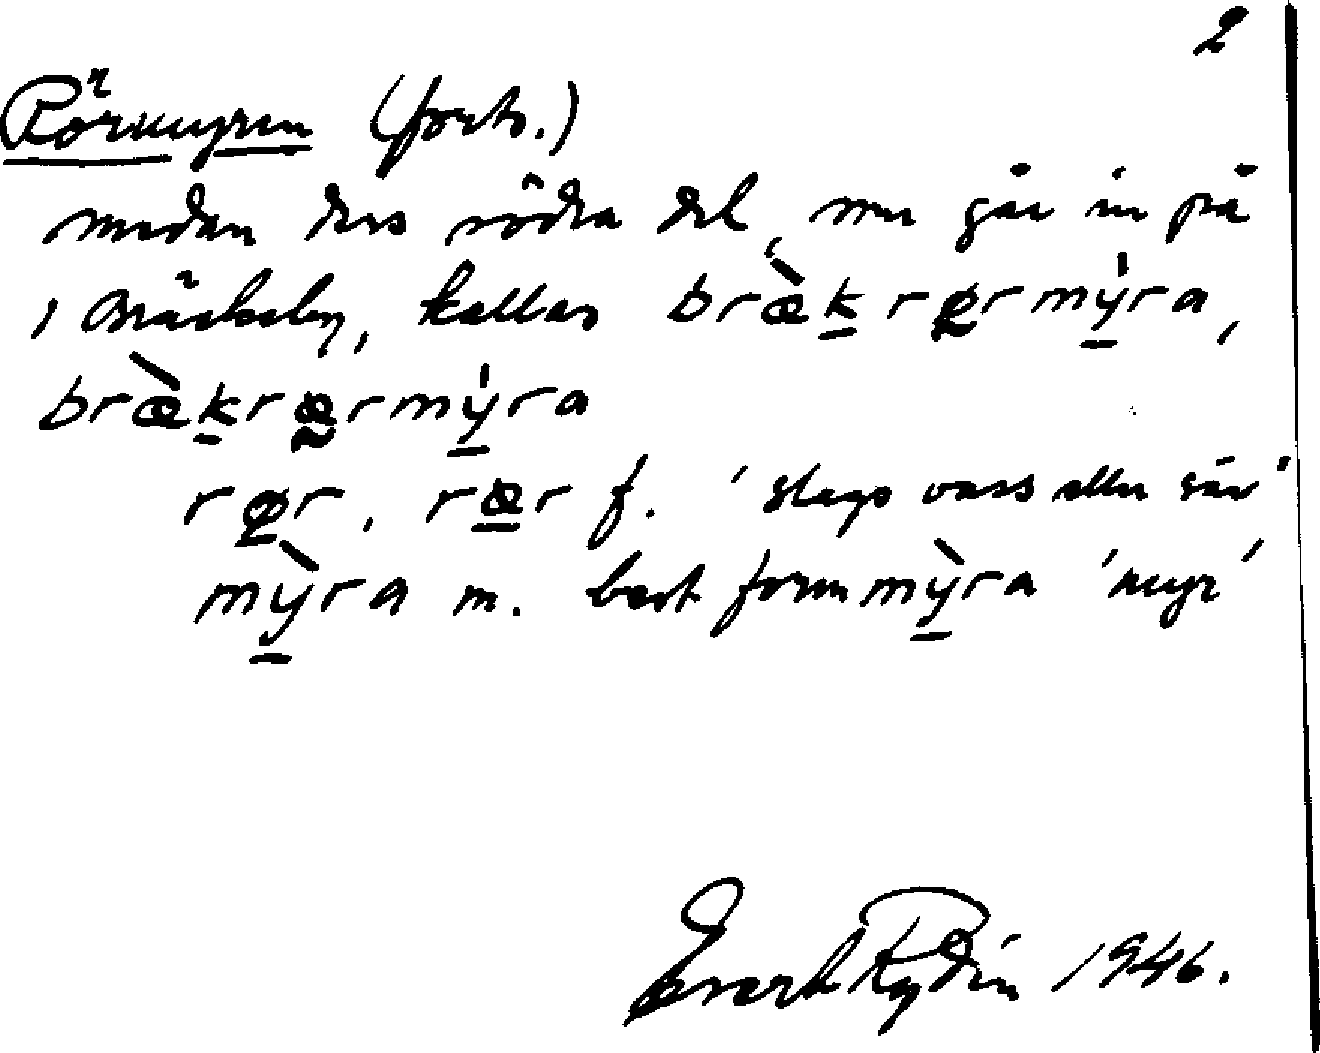 2
Rörmyren (forts.)
medan dess södra del, som går in på
, kallas bræ̀k̠rø̰rmy̠̍ra,
bræ̀k̠ræ̰rmy̠̍ra
rø̠r, ræ̠r f. 'slags vass eller säv'
mỳ̠ra m. best form mỳ̠ra 'myr'
Evert Rydin 1946.